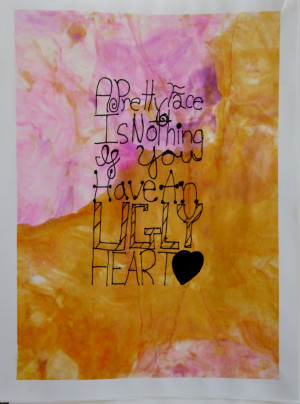 A Pretty Face
Is Nothing
If You
Have An
UGLY
HEART